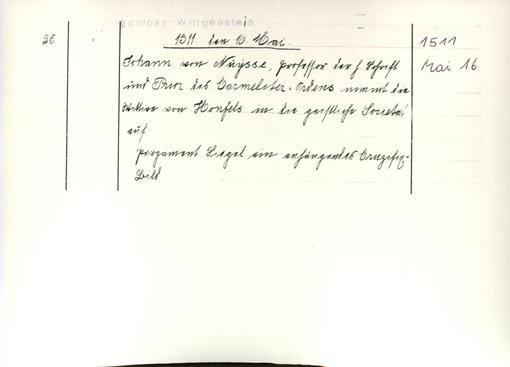 Schloss Wittgenstein
26
1511 den 16. Mai.
1511
Mai 16
Johann von Nuysse, Professor der h. Schrift
und Prior des Carmeliter-Ordens nimmt die
Wittwe von Honfels in die geistliche Societät
auf
pergament Siegel ein anhängendes Cruzifix-
Bild